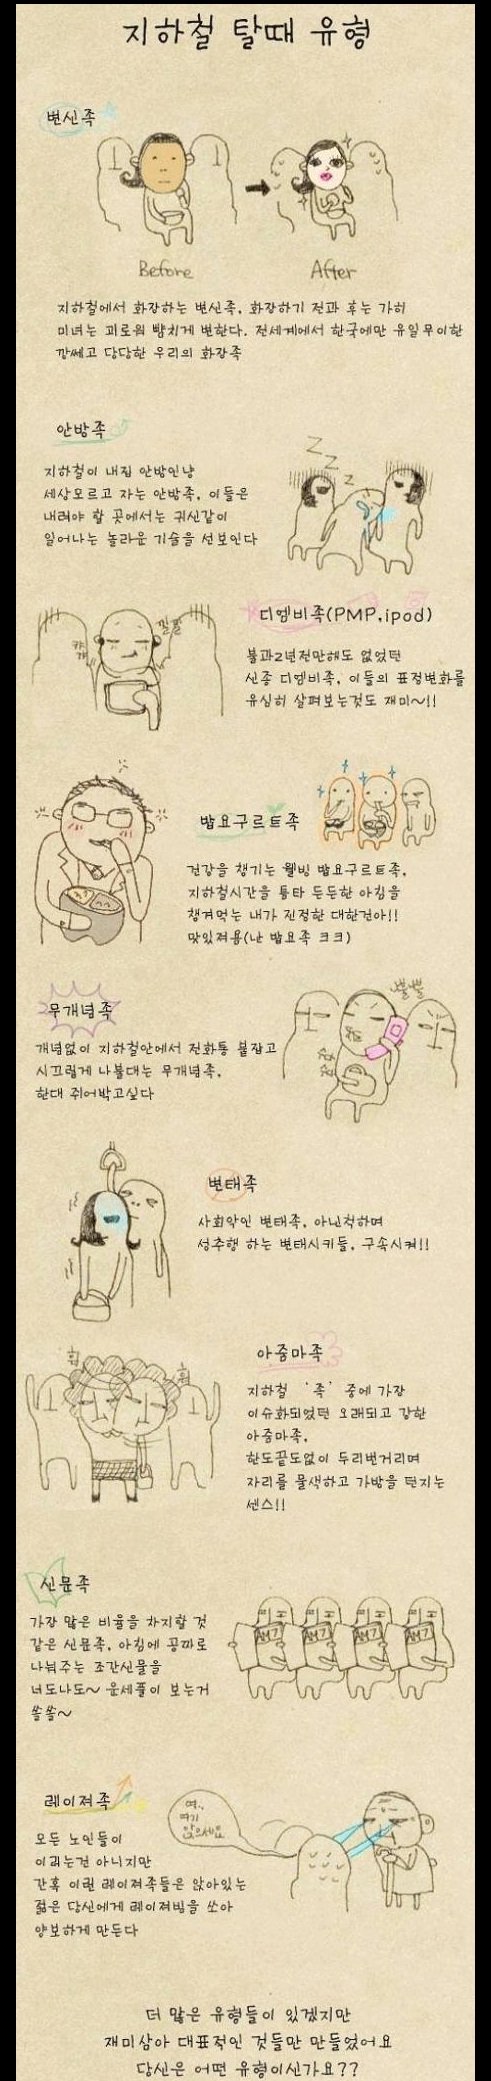 지하철 탈때 유형
변신족
Before
After
지하철에서 화장하는 변신족, 화장하기 전과 후는 가히
미녀는 괴로워 뺨치게 변한다. 전세계에서 한국에만 유일무이한
깡쎄고 당당한 우리의 화장족
안방족
지하철이 내집 안방인냥
세상모르고 자는 안방족, 이들은
내려야 할 곳에서는 귀신같이
일어나는 놀라운 기술을 선보인다
Z
Z
Z
디엠비족(PMP,ipod)
낄낄
불과2년전만해도 없었던
신종 디엠비족, 이들의 표정변화를
유심히 살펴보는것도 재미~!!
밥요구르트족
건강을 챙기는 웰빙 밥요구르트족,
지하철시간을 틈타 든든한 아침을
챙겨먹는 내가 진정한 대한건아!!
맛있져용(난 밥요족 크크)
무개념족
뿔뿔
개념없이 지하철안에서 전화통 붙잡고
시끄럽게 나불대는 무개념족,
한대 쥐어박고싶다
변태족
사회악인 변태족, 아닌척하며
성추행 하는 변태시키들, 구속시켜!!
아줌마족
휙
휙
지하철 '족' 중에 가장
이슈화되었던 오래되고 강한
아줌마족,
한도끝도없이 두리번거리며
자리를 물색하고 가방을 던지는
센스!!
신문족
가장 많은 비율을 차지할 것
같은 신문족, 아침에 공짜로
나눠주는 조간신물을
너도나도~ 운세풀이 보는거
쏠쏠~
AM7
AM7
AM7
AM7
레이져족
여..
여기
앉으세요
모든 노인들이
이러는건 아니지만
간혹 이런 레이져족들은 앉아있는
젊은 당신에게 레이져빔을 쏘아
양보하게 만든다
더 많은 유형들이 있겠지만
재미삼아 대표적인 것들만 만들었어요
당신은 어떤 유형이신가요??